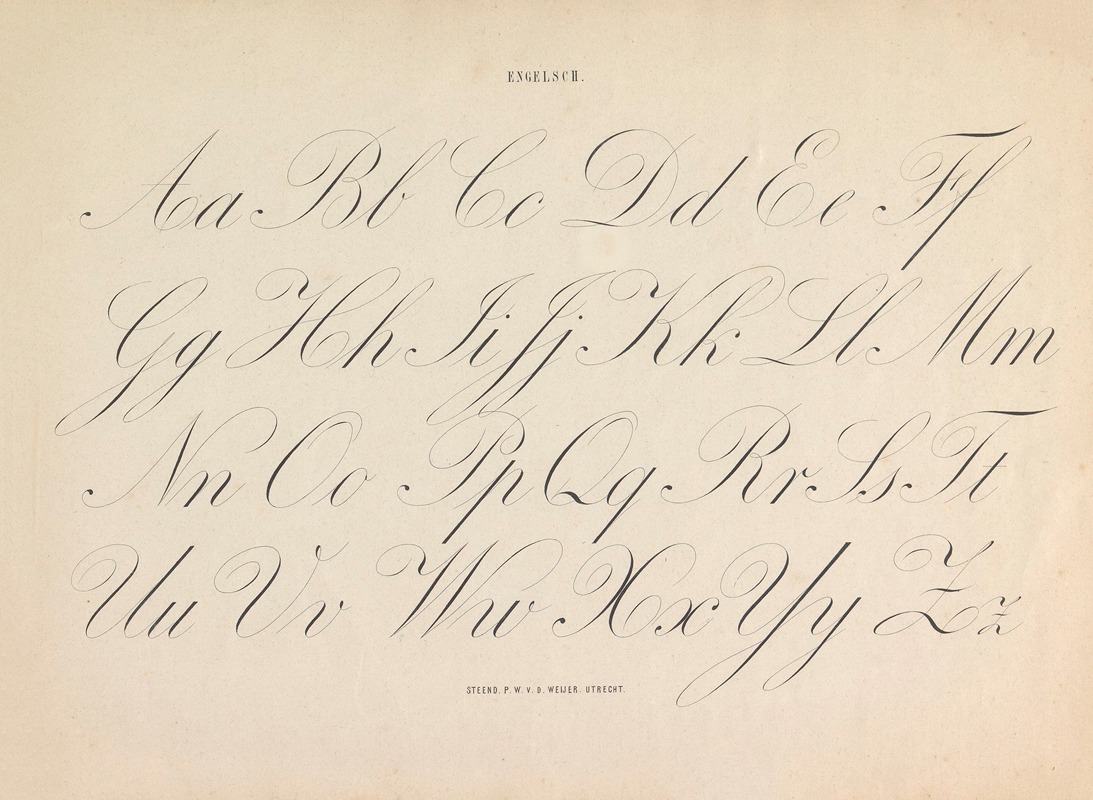 ENGELSCH.
Aa Bb Cc Dd Ee Ff
Gg Hh Ii Jj Kk Ll Mm
Nn Oo Pp Qq Rr Ss Tt
Uu Vv Ww Xx Yy Zz
STEEND. P. W. V. D. WEIJER. UTRECHT.